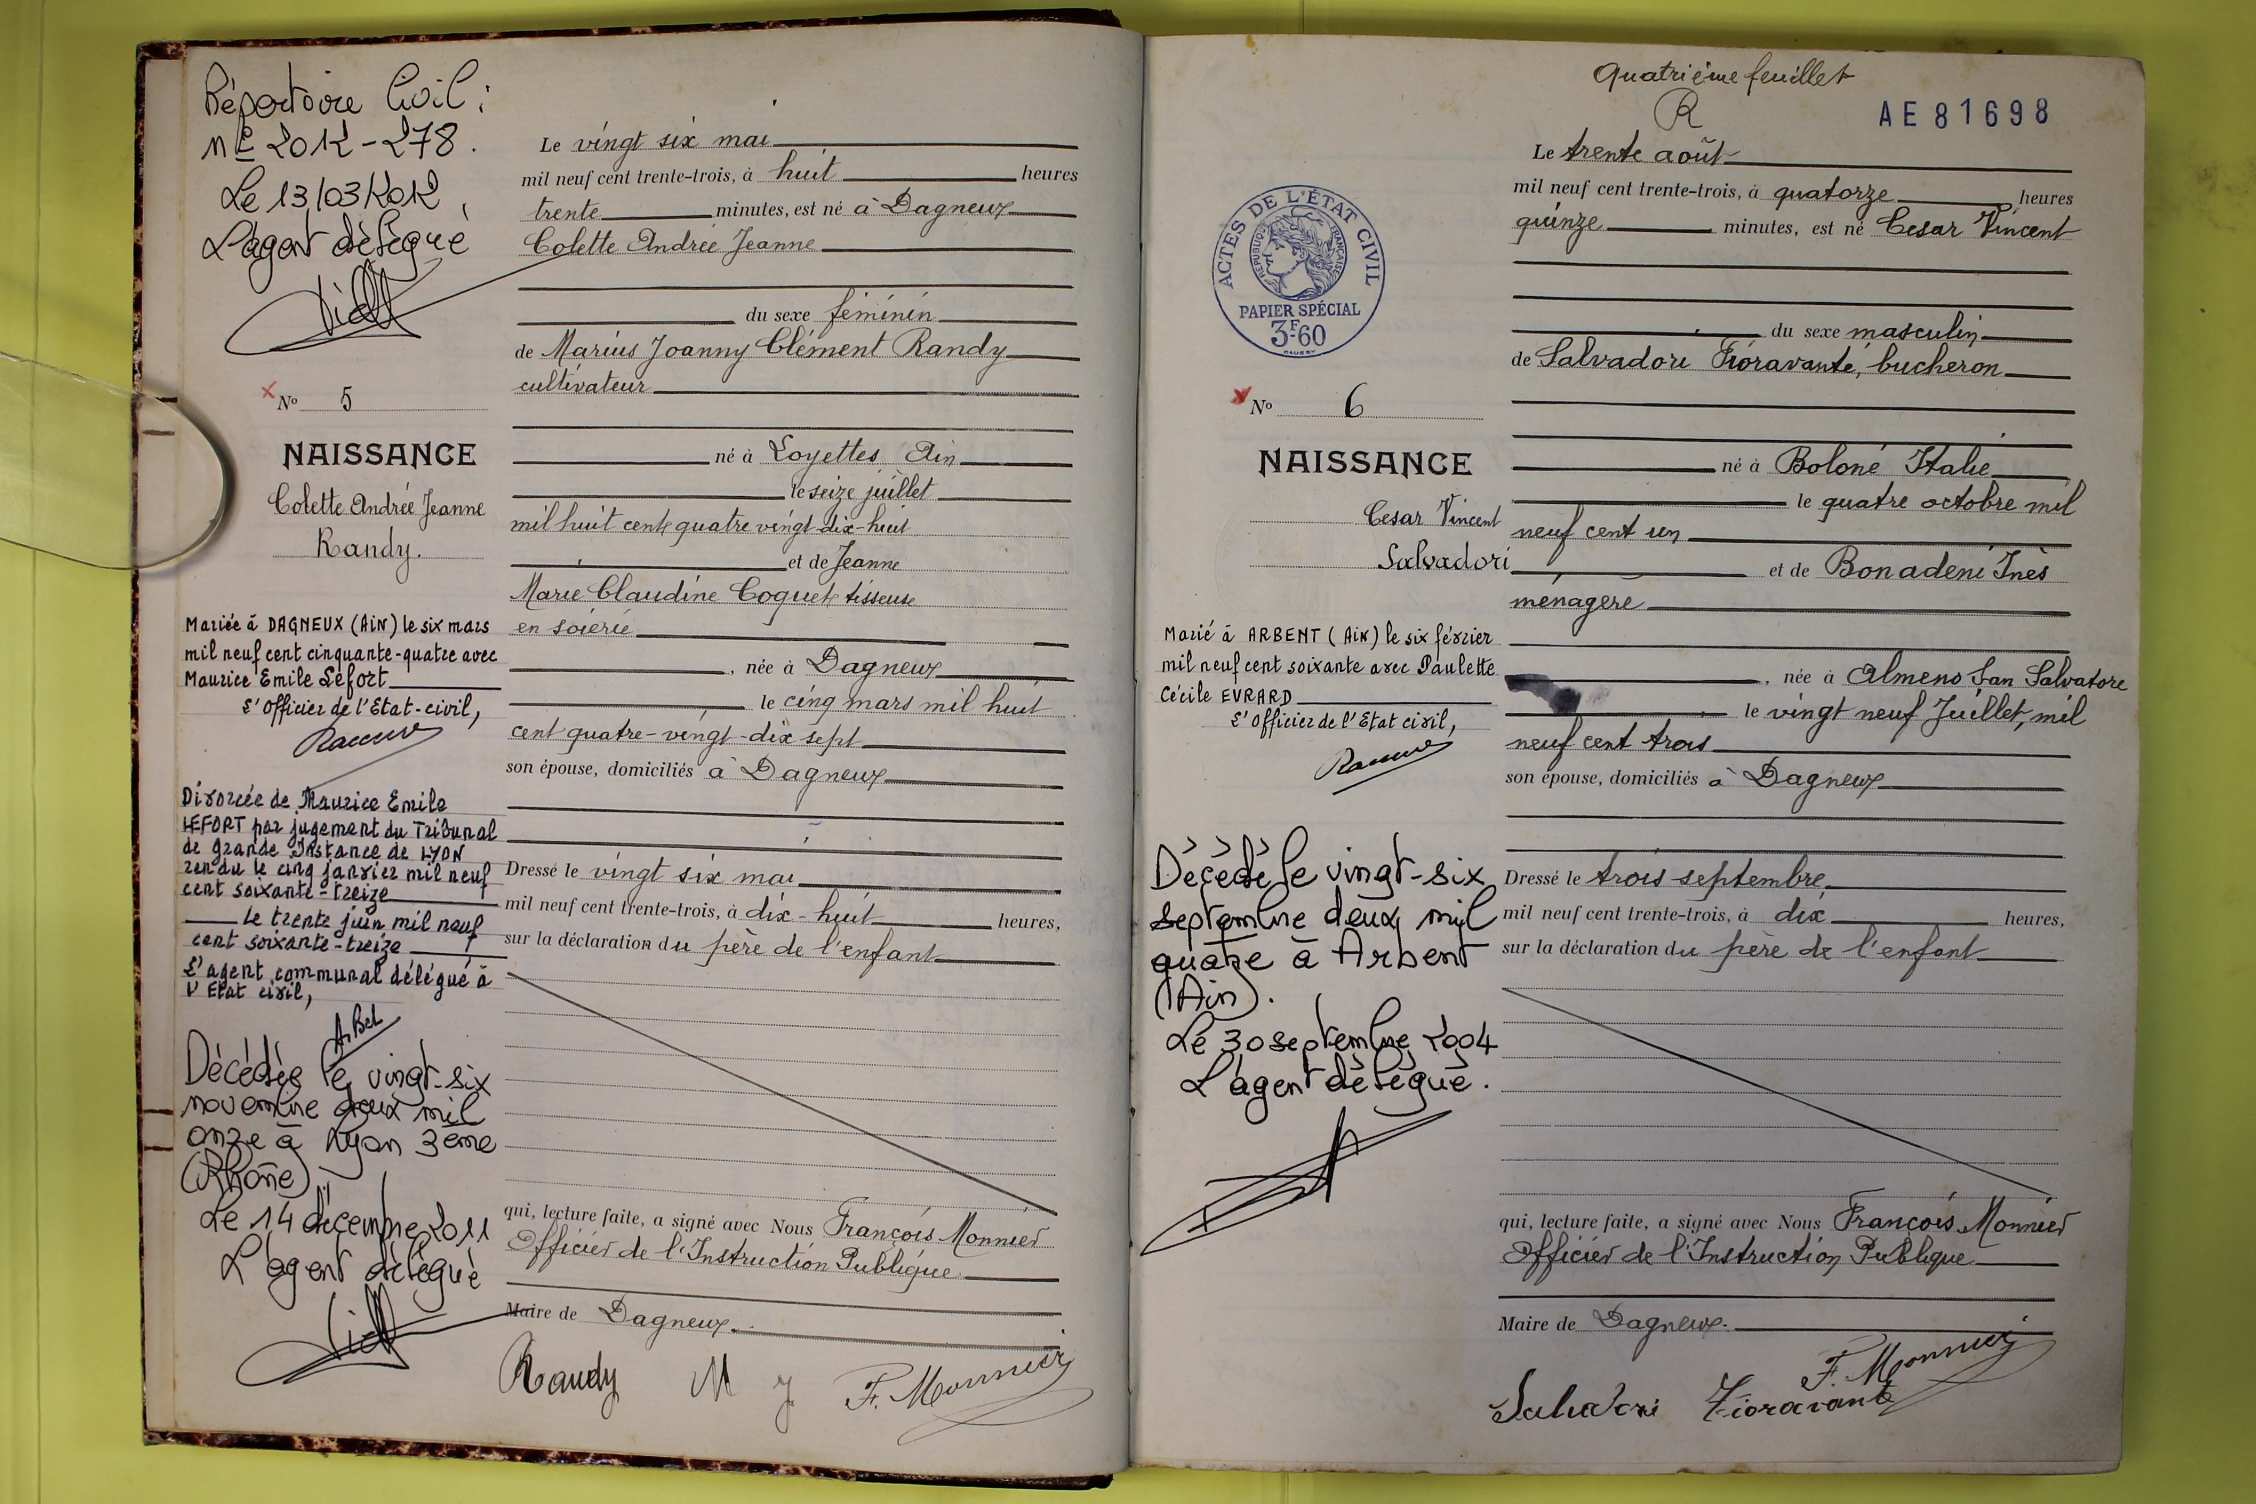 Répertoire Civil :
nº 2012-278.
Le 13/03/2012,
L'agent délégué
X Nº 5
NAISSANCE
Colette Andrée Jeanne
Randy.
Mariée à DAGNEUX (Ain) le six mars
mil neuf cent cinquante-quatre avec
Maurice Emile Lefort
L'Officier de l'Etat-civil,
Divorcée de Maurice Emile
LEFORT par jugement du Tribunal
de Grande Instance de LYON
rendu le cinq janvier mil neuf
cent soixante-treize
Le trente juin mil neuf
cent soixante-treize
L'agent communal délégué à
l'Etat civil,
Décédée le vingt-six
novembre deux mil
onze à Lyon 3ème
(Rhône).
Le 14 décembre 2011
L'agent délégué
Le vingt six mai
mil neuf cent trente-trois, à huit heures
trente minutes, est né à Dagneux
Colette Andrée Jeanne
du sexe féminin
de Marius Joanny Clément Randy
cultivateur
né à Loyettes Ain
le seize juillet
mil huit cent quatre vingt-dix-huit
et de Jeanne
Marie Claudine Coquet tisseuse
en soierie
, née à Dagneux
le cinq mars mil huit
cent quatre-vingt-dix sept
son épouse, domiciliés à Dagneux
Dressé le vingt six mai
mil neuf cent trente-trois, à dix-huit heures,
sur la déclaration du père de l'enfant
qui, lecture faite, a signé avec Nous François Monnier
Officier de l'Instruction Publique
Maire de Dagneux.
Randy M J F. Monnier
Quatrième feuillet
R
AE 81698
ACTES DE L'ÉTAT CIVIL
RÉPUBLIQUE FRANÇAISE
PAPIER SPÉCIAL
3F-60
X Nº 6
NAISSANCE
Cesar Vincent
Salvadori
Marié à ARBENT (Ain) le six février
mil neuf cent soixante avec Paulette
Cécile EVRARD
L'Officier de l'Etat civil,
Décédé le vingt-six
septembre deux mil
quatre à Arbent
(Ain).
Le 30 septembre 2004
L'agent délégué.
Le trente août
mil neuf cent trente-trois, à quatorze heures
quinze minutes, est né Cesar Vincent
du sexe masculin
de Salvadori Fioravante, bucheron
né à Boloné Italie
le quatre octobre mil
neuf cent un
et de Bonadeni Inès
ménagère
, née à Almeno San Salvatore
le vingt neuf Juillet, mil
neuf cent trois
son épouse, domiciliés à Dagneux
Dressé le trois septembre
mil neuf cent trente-trois, à dix heures,
sur la déclaration du père de l'enfant
qui, lecture faite, a signé avec Nous François Monnier
Officier de l'Instruction Publique
Maire de Dagneux.
F. Monnier
Salvadori Fioravante